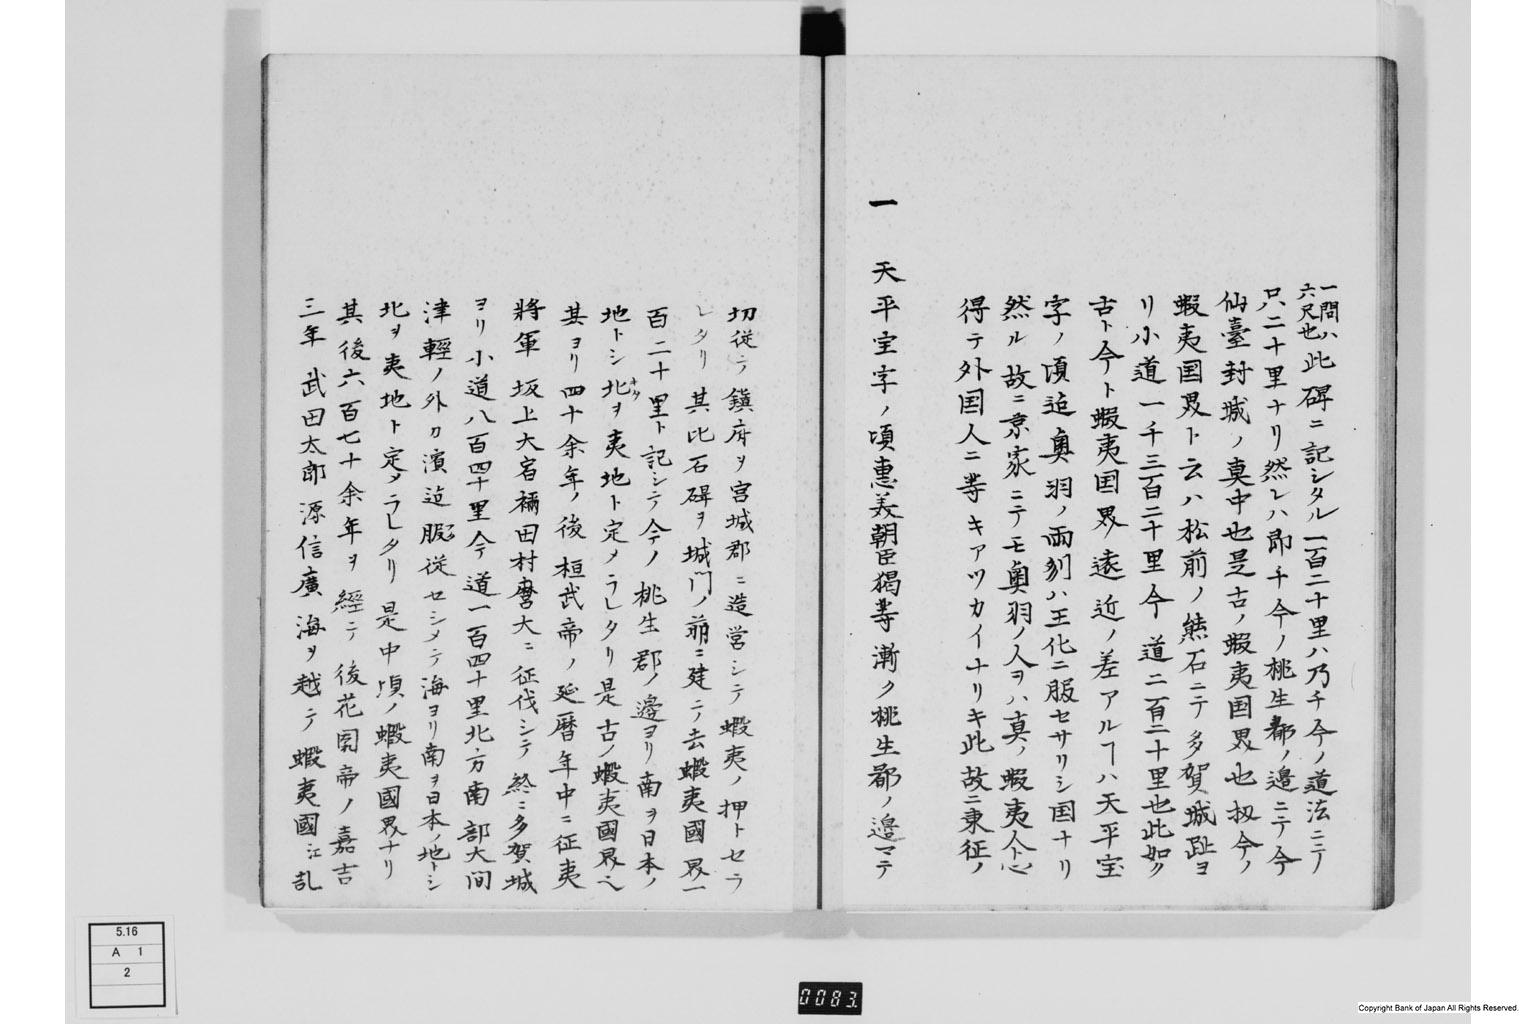 一間ハ
六尺也
此碑ニ記シタル一百二十里ハ乃チ今ノ道法ニテ
只二十里ナリ然レハ即チ今ノ桃生郡ノ邉ニテ今
仙臺封城ノ真中也是古ノ蝦夷国界也扨今ノ
蝦夷国界ト云ハ松前ノ熊石ニテ多賀城趾ヨ
リ小道一千三百二十里今道二百二十里也此如ク
古ト今ト蝦夷国界遠近ノ差アルヿハ天平宝
字ノ頃迠奥羽ノ両刕ハ王化ニ服セサリシ国ナリ
然ル故ニ京家ニテモ奥羽ノ人ヲハ真ノ蝦夷人ト心
得テ外国人ニ等キアツカイナリキ此故ニ東征ノ
一 天平宝字ノ頃惠美朝臣獦等漸ク桃生郡ノ邉マテ
切従テ鎭府ヲ宮城郡ニ造営シテ蝦夷ノ押トセラ
レタリ其比石碑ヲ城門ノ前ニ建テ去蝦夷國界一
百二十里ト記シテ今ノ桃生郡ノ邉ヨリ南ヲ日本ノ
地トシ北ヲ夷地ト定メラレタリ是古ノ蝦夷國界也
其ヨリ四十余年ノ後桓武帝ノ延暦年中ニ征夷
將軍坂上大宿禰田村麿大ニ征伐シテ終ニ多賀城
ヨリ小道八百四十里今道一百四十里北方南部大间
津輕ノ外カ濱迠服従セシメテ海ヨリ南ヲ日本ノ地トシ
北ヲ夷地ト定メラレタリ是中頃ノ蝦夷國界ナリ
其後六百七十余年ヲ經テ後花園帝ノ嘉吉
三年武田太郎源信廣海ヲ越テ蝦夷國江乱
5.16
A 1
2
0083
Copyright Bank of Japan All Rights Reserved.